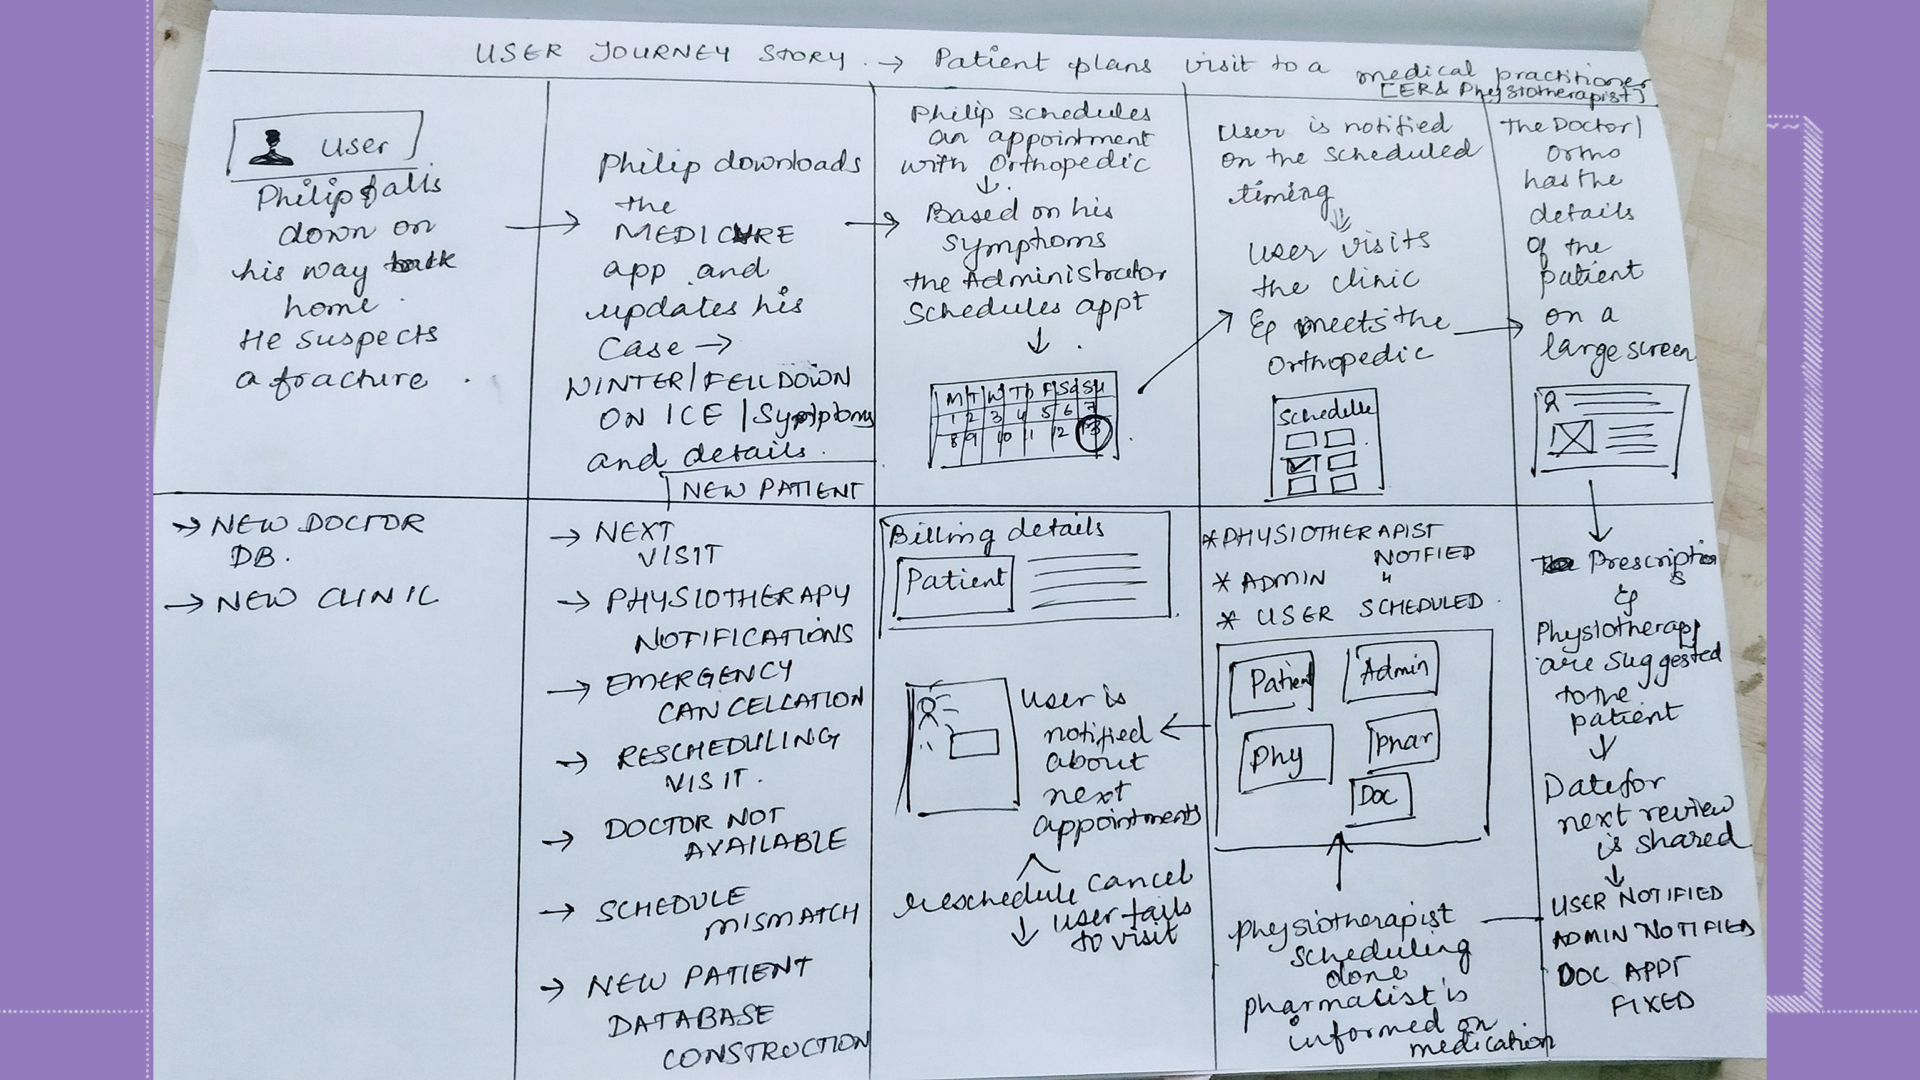 USER JOURNEY STORY. → Patient plans visit to a medical practitioner
[ER& Physiotherapist]
User
Philip falls
down on
his way
home.
He suspects
a fracture.
Philip downloads
the
MEDICURE
app and
updates his
case →
WINTER/FELL DOWN
ON ICE | Symptoms
and details.
NEW PATIENT
Philip schedules
an appointment
with Orthopedic
↓
Based on his
symptoms
the Administrator
schedules appt
↓
M T W Th F Sa Su
1 2 3 4 5 6 7
8 9 10 11 12 13
User is notified
on the scheduled
timing
User visits
the clinic
& meets the
Orthopedic
Schedule
The Doctor/
Ortho
has the
details
of the
patient
on a
large screen
→ NEW DOCTOR
DB.
→ NEW CLINIC
→ NEXT
VISIT
→ PHYSIOTHERAPY
NOTIFICATIONS
→ EMERGENCY
CANCELLATION
→ RESCHEDULING
VISIT.
→ DOCTOR NOT
AVAILABLE
→ SCHEDULE
MISMATCH
→ NEW PATIENT
DATABASE
CONSTRUCTION
Billing details
Patient
User is
notified
about
next
appointments
reschedule cancel
↓ user fails
to visit
* PHYSIOTHERAPIST
NOTIFIED
* ADMIN "
* USER SCHEDULED.
Patient
Admin
Phy
Phar
Doc
physiotherapist
scheduling
done
pharmacist is
informed on
medication
Prescription
&
Physiotherapy
are suggested
to the
patient
↓
Date for
next review
is shared
↓
USER NOTIFIED
ADMIN NOTIFIED
DOC APPT
FIXED